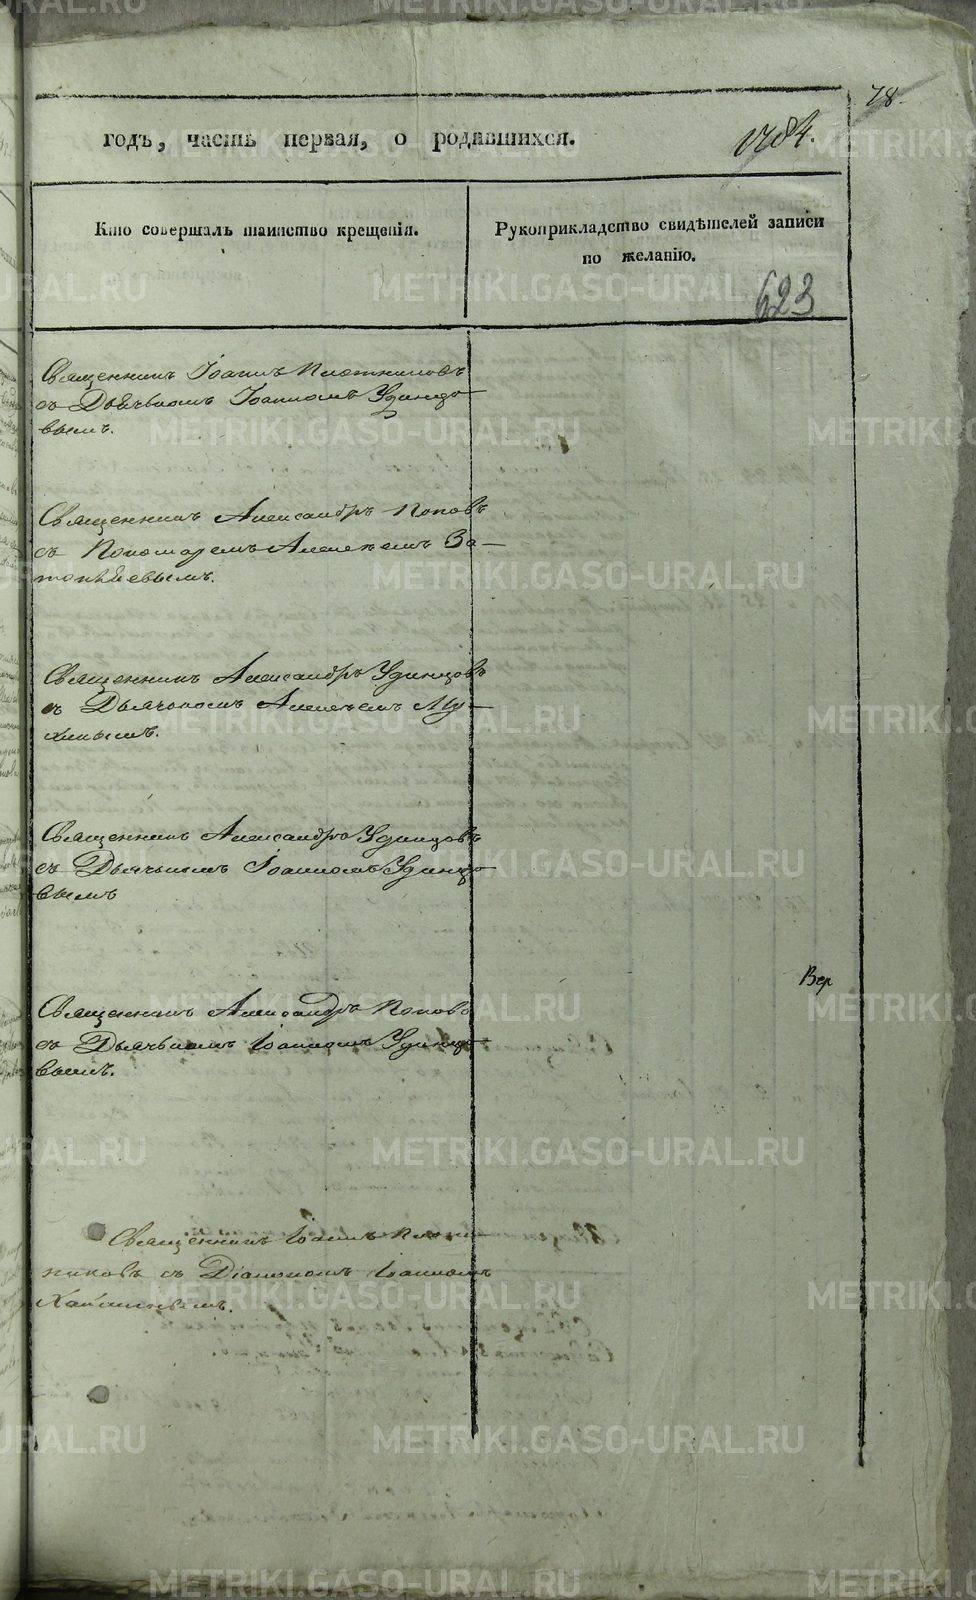 78.
годъ, часть первая, о родившихся.
Кто совершалъ таинство крещенія.
Рукоприкладство свидѣтелей записи
по желанію.
623
Священникъ Іоаннъ Плотниковъ
съ Дьячькомъ Іоанномъ Удинцо-
вымъ.
Священникъ Александръ Поповъ
съ Пономаремъ Алексѣемъ За-
Священникъ Александръ Удинцовъ
съ Дьячькомъ Алексѣемъ Му-
хинымъ.
Священникъ Александръ Удинцовъ
съ Дьячькомъ Іоанномъ Удинцо-
вымъ
Вер
Священникъ Александръ Поповъ
съ Дьячькомъ Іоанномъ Удинцо-
вымъ.
Священникъ Іоаннъ Плот-
никовъ съ Діакономъ Іоанномъ
METRIKI.GASO-URAL.RU